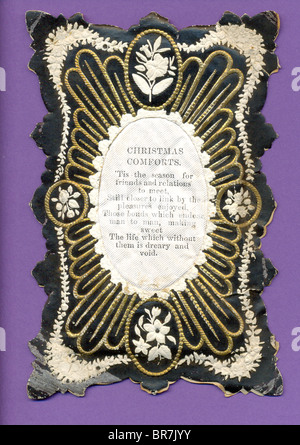 CHRISTMAS
COMFORTS.
'Tis the season for
friends and relations
to meet,
Still closer to link by the
pleasures enjoyed,
Those bonds which endear
man to man, making
sweet
The life which without
them is dreary and
void.
alamy
Image ID: BR7JYY
www.alamy.com